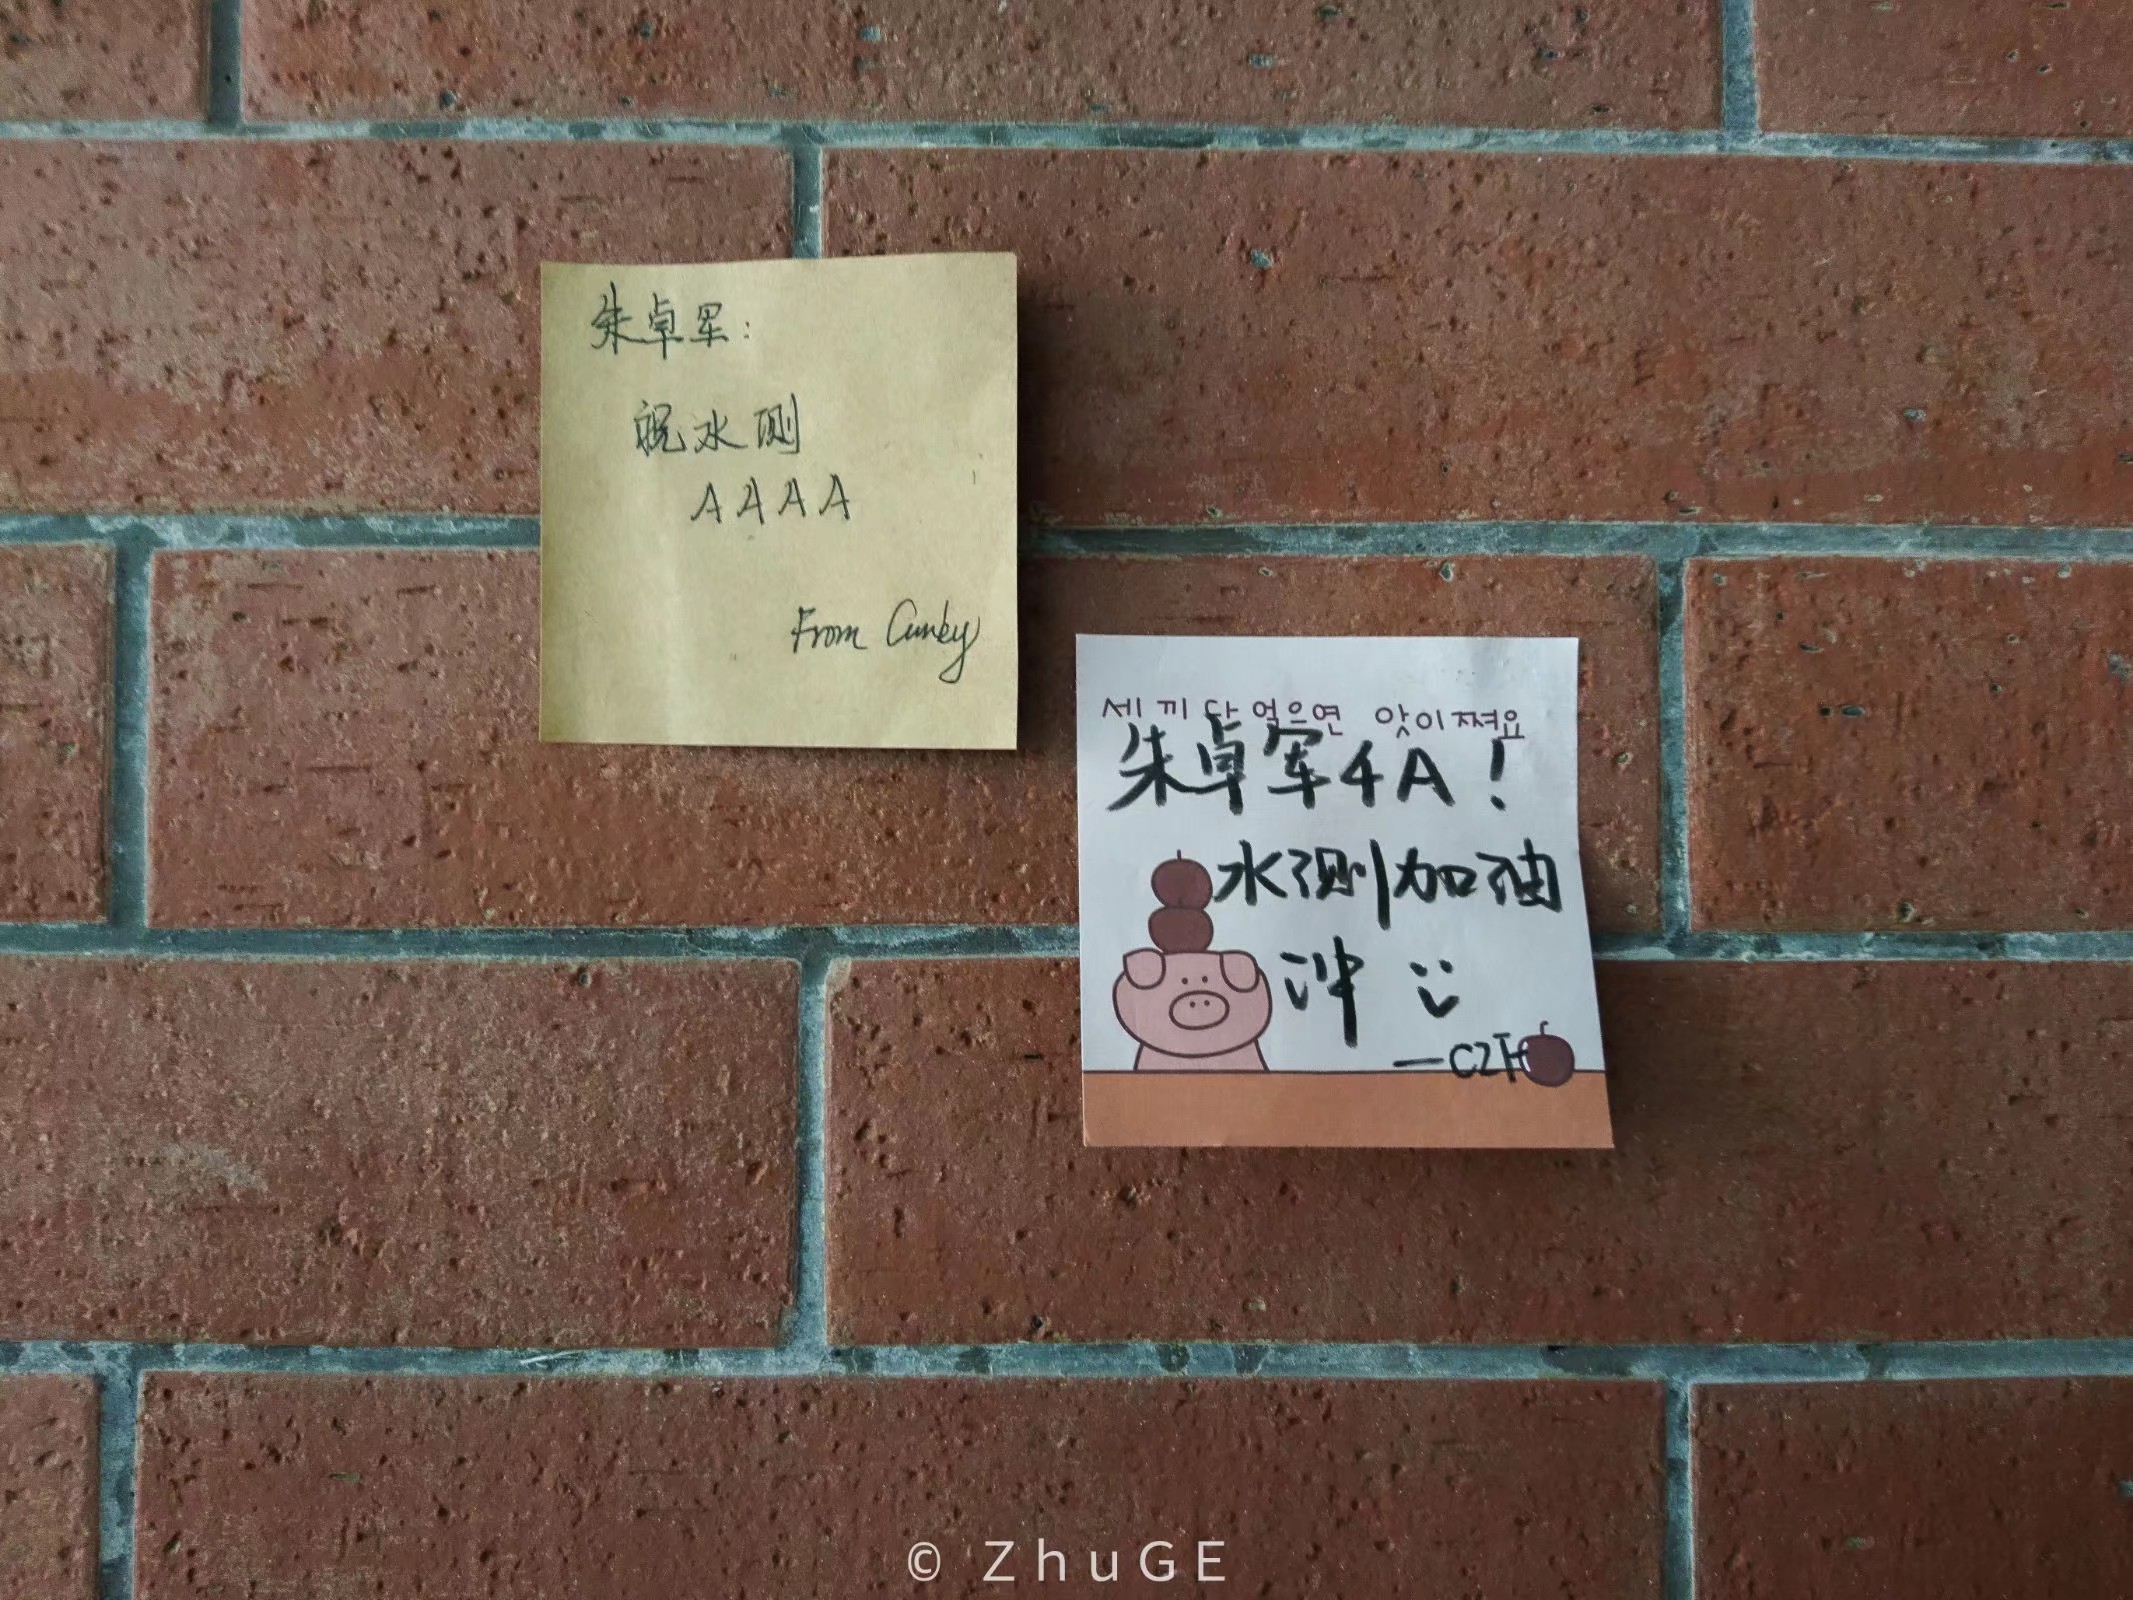 朱卓军:
祝水测
AAAA
From Cunky
세 끼 다 먹으면 맛이쪄요
朱卓军4A!
水测加油
冲
—CZH
© ZhuGE